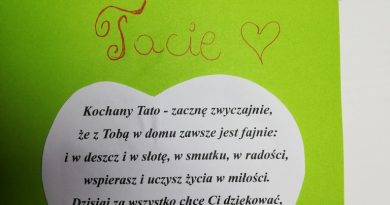 Tacie ♡
Kochany Tato - zacznę zwyczajnie,
że z Tobą w domu zawsze jest fajnie:
i w deszcz i w słotę, w smutku, w radości,
wspierasz i uczysz życia w miłości.
Dzisiaj za wszystko chcę Ci dziękować,